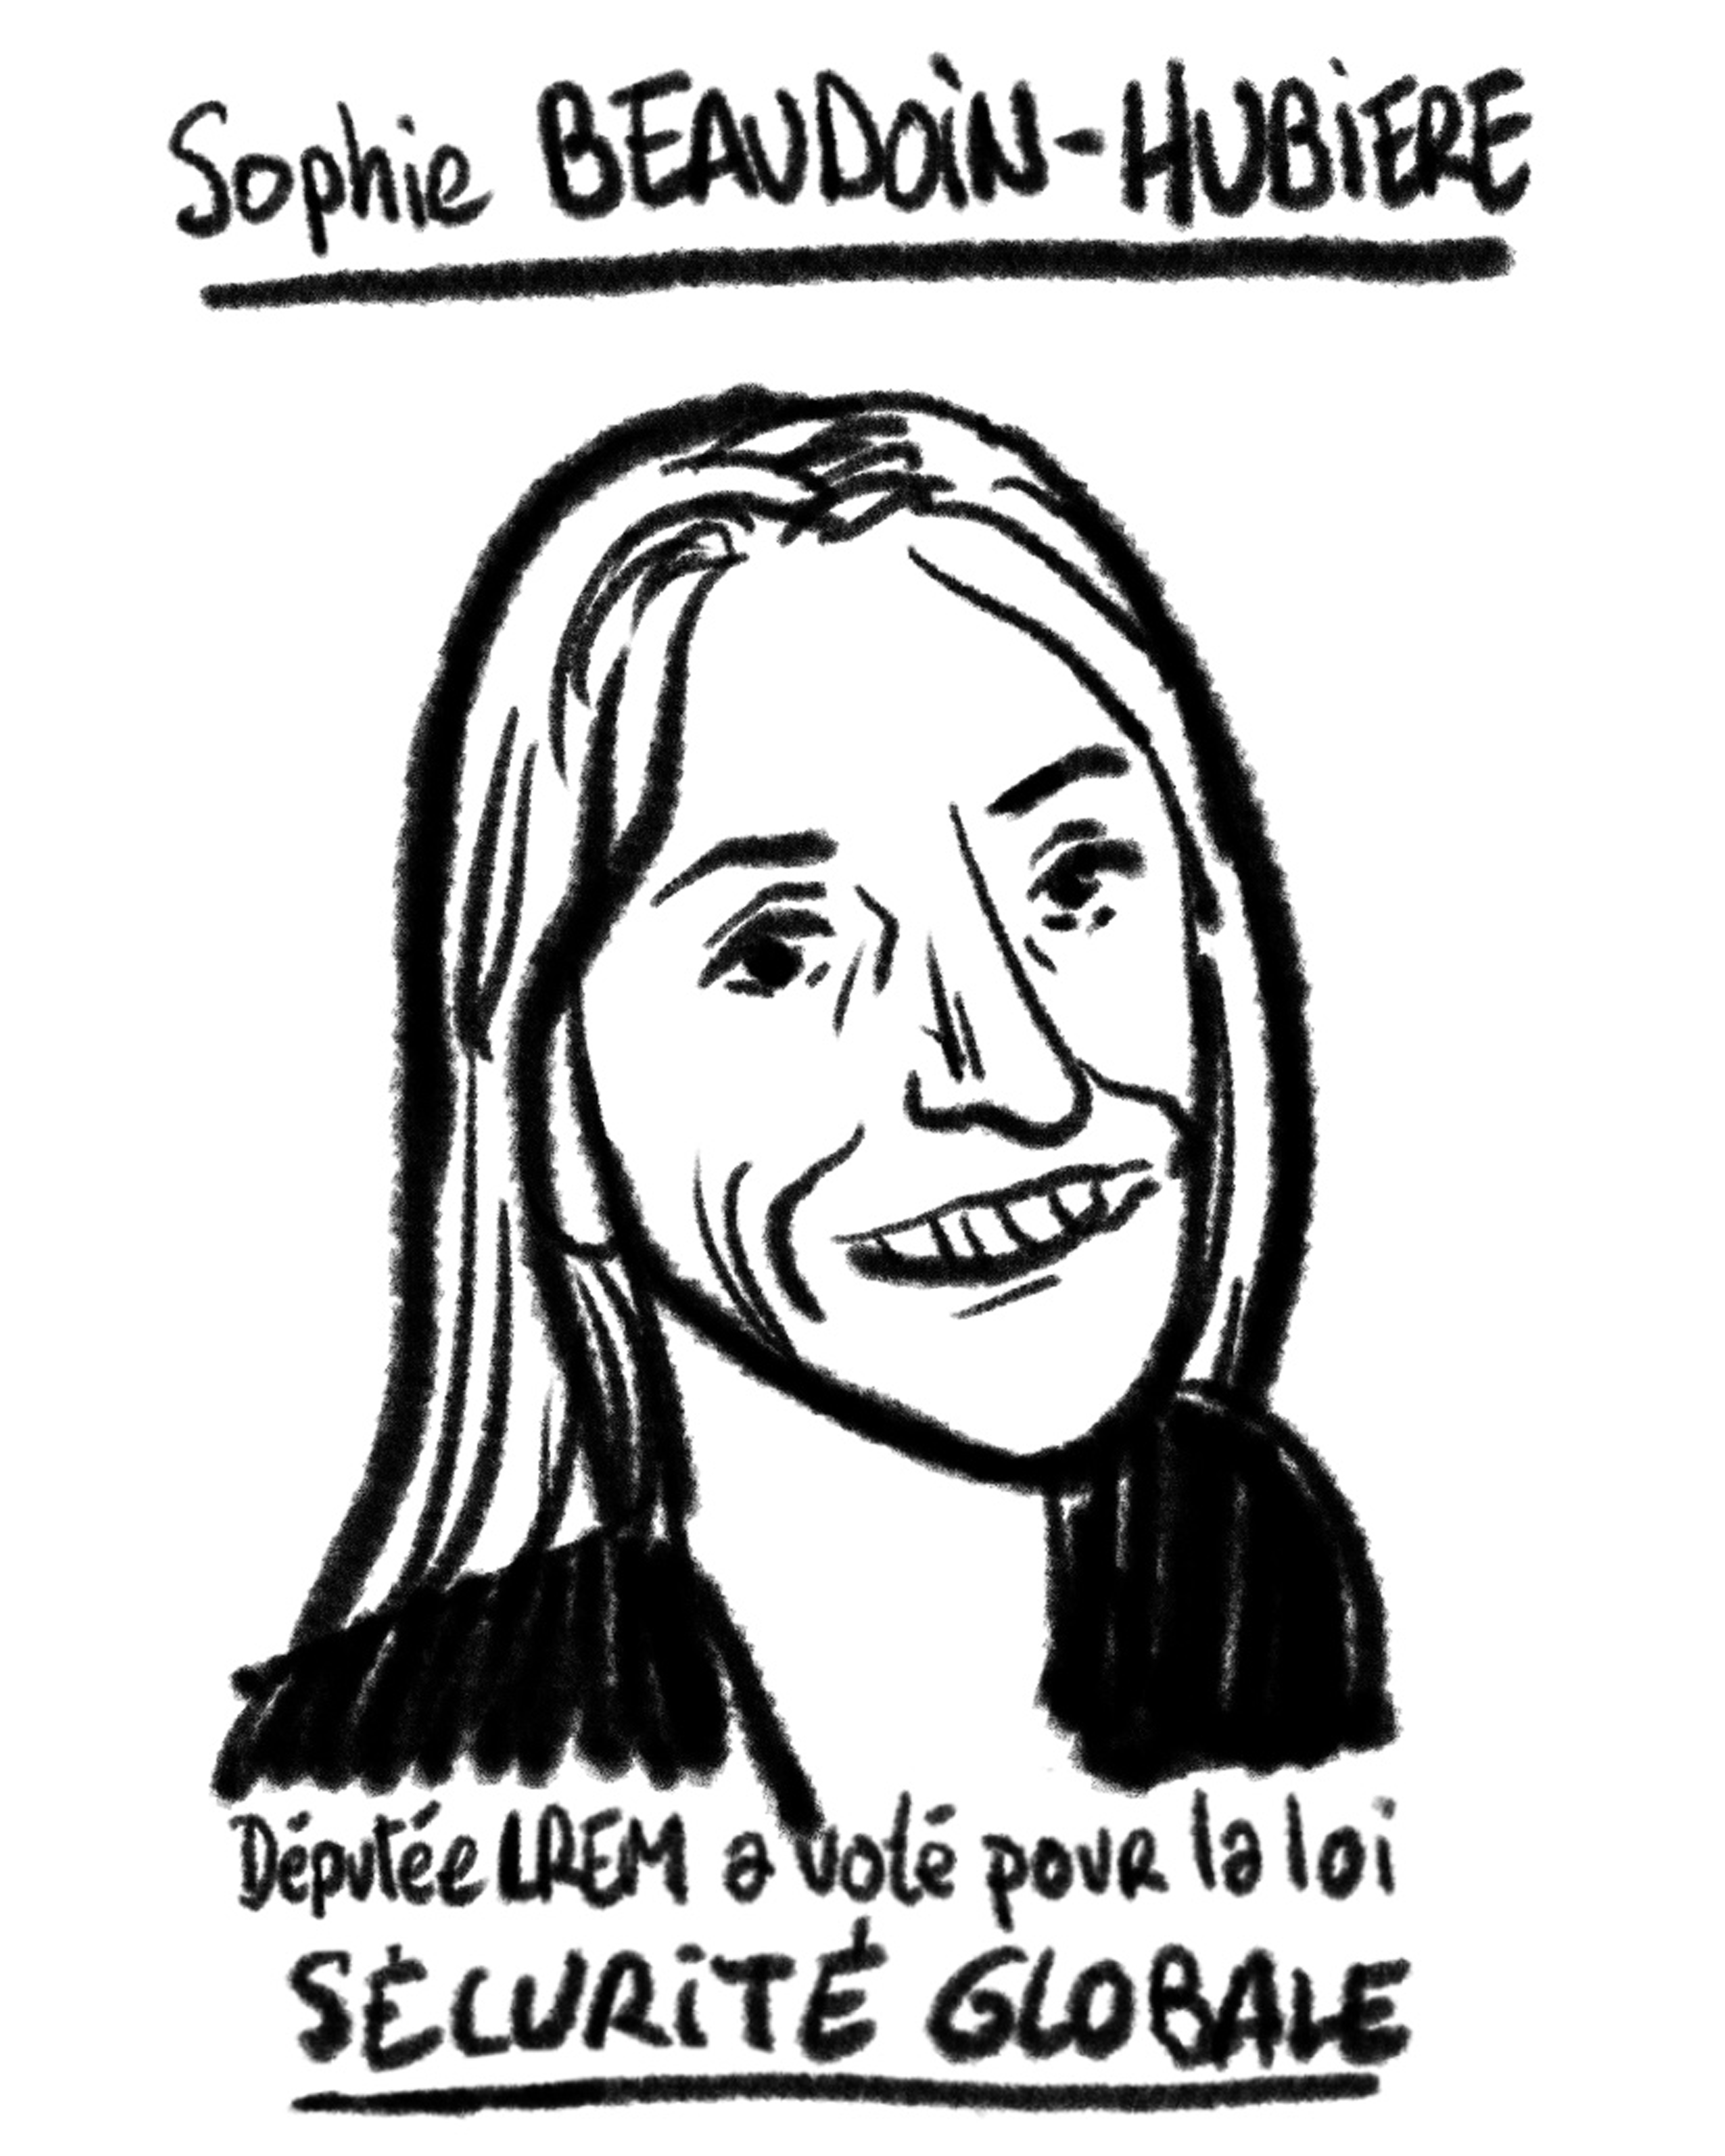 Sophie BEAUDOIN-HUBIERE
Députée LREM a voté pour la loi
SÉCURITÉ GLOBALE